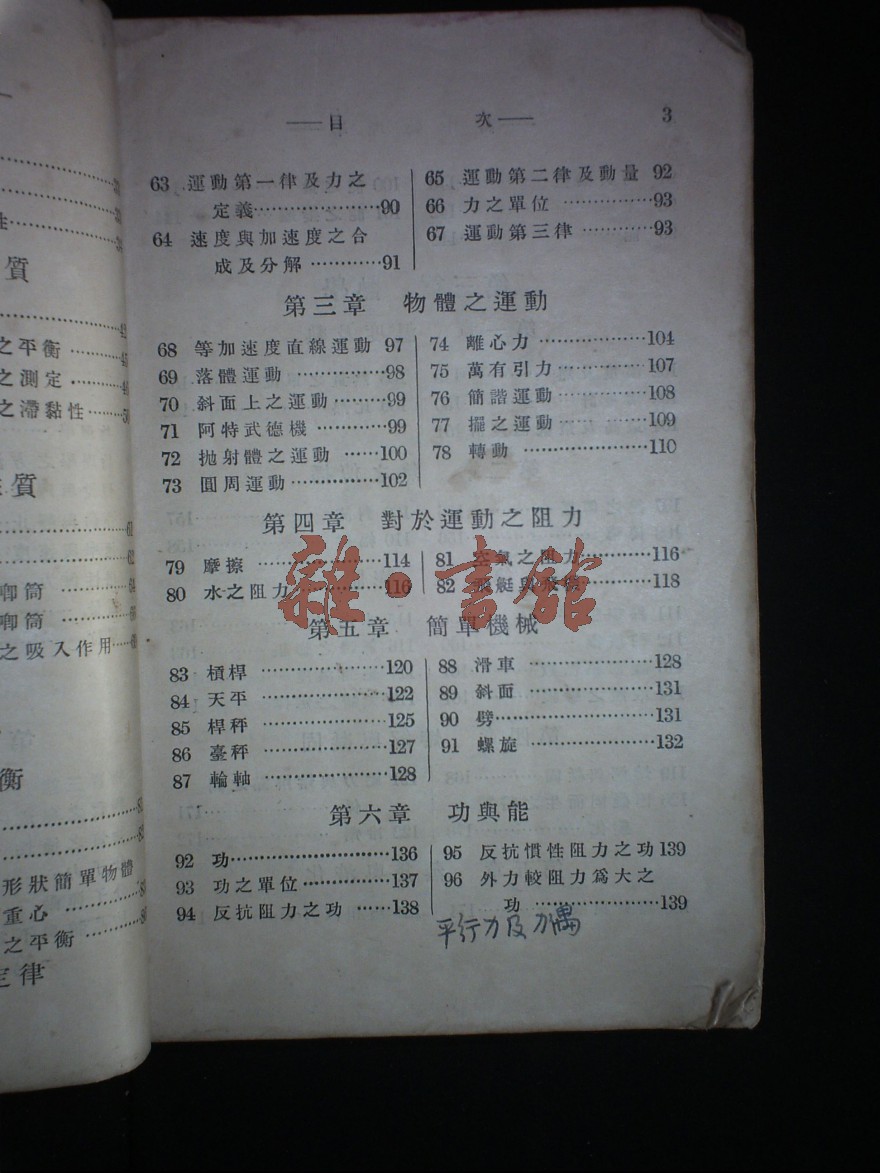 目 次 3
63 運動第一律及力之
定義……………90
64 速度與加速度之合
成及分解…………91
65 運動第二律及動量 92
66 力之單位……………93
67 運動第三律…………93
第三章 物體之運動
68 等加速度直線運動 97
69 落體運動……………98
70 斜面上之運動………99
71 阿特武德機…………99
72 拋射體之運動……100
73 圓周運動……………102
74 離心力………………104
75 萬有引力……………107
76 簡諧運動……………108
77 擺之運動……………109
78 轉動…………………110
第四章 對於運動之阻力
79 摩擦…………………114
80 水之阻力……………116
81 空氣之阻力…………116
82 飛艇與飛機…………118
雜·書館
第五章 簡單機械
83 槓桿…………………120
84 天平…………………122
85 桿秤…………………125
86 臺秤…………………127
87 輪軸…………………128
88 滑車…………………128
89 斜面…………………131
90 劈……………………131
91 螺旋…………………132
第六章 功與能
92 功……………………136
93 功之單位……………137
94 反抗阻力之功……138
95 反抗慣性阻力之功139
96 外力較阻力爲大之
功……………139
平行力及力偶
質
之平衡
之測定
之滯黏性
性質
唧筒
唧筒
之吸入作用
衡
形狀簡單物體
重心
之平衡
定律